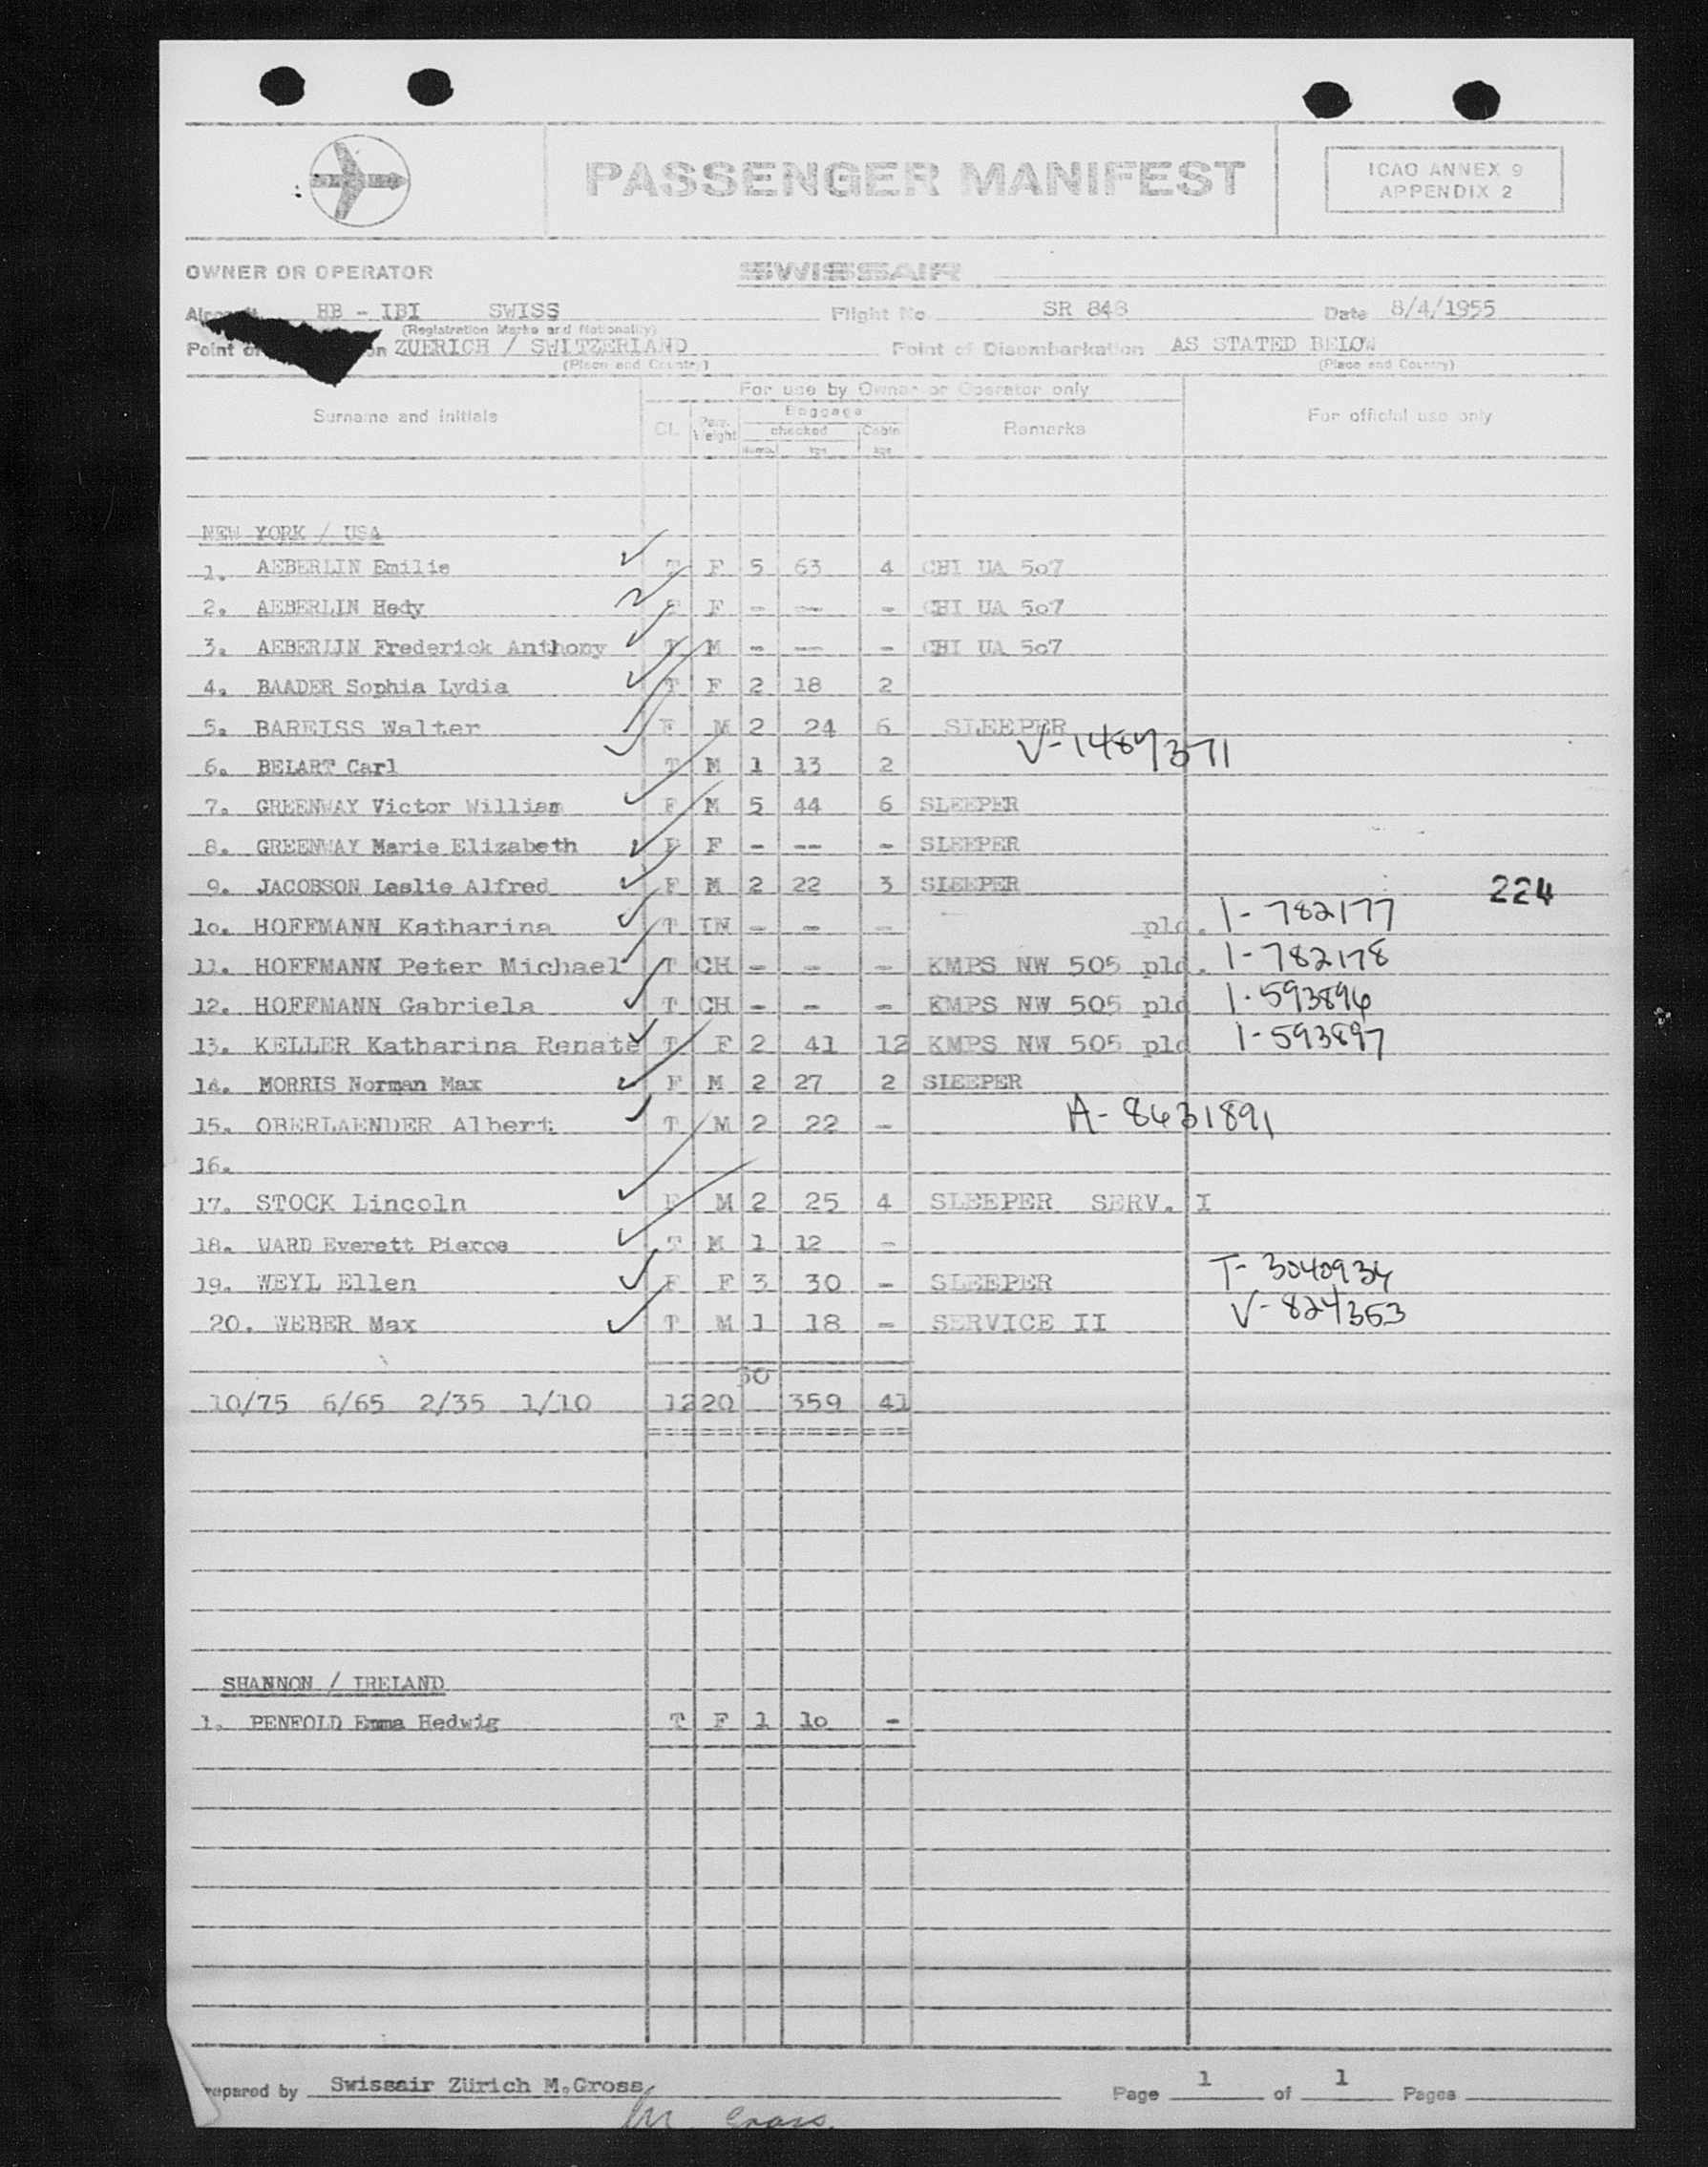 PASSENGER MANIFEST
ICAO ANNEX 9
APPENDIX 2
OWNER OR OPERATOR SWISSAIR
HB - IBI SWISS Flight No SR 848 Date 8/4/1955
(Registration Marks and Nationality)
Point of on ZUERICH / SWITZERLAND Point of Disembarkation AS STATED BELOW
(Place and Country) (Place and Country)
For use by Owner or Operator only
Surname and initials CL. Pass. Weight Baggage checked Cabin Remarks For official use only
Numb. kgs kgs
NEW YORK / USA
1. AEBERLIN Emilie T F 5 63 4 CHI UA 507
2. AEBERLIN Hedy F - -- - CHI UA 507
3. AEBERLIN Frederick Anthony T M - -- - CHI UA 507
4. BAADER Sophia Lydia T F 2 18 2
5. BAREISS Walter F M 2 24 6 SLEEPER
V-1487371
6. BELART Carl T M 1 13 2
7. GREENWAY Victor William F M 5 44 6 SLEEPER
8. GREENWAY Marie Elizabeth F F - -- - SLEEPER
9. JACOBSON Leslie Alfred F M 2 22 3 SLEEPER 224
10. HOFFMANN Katharina T IN - - - pld. 1-782177
11. HOFFMANN Peter Michael T CH - - - KMPS NW 505 pld. 1-782178
12. HOFFMANN Gabriela T CH - - - KMPS NW 505 pld 1-593896
13. KELLER Katharina Renate T F 2 41 12 KMPS NW 505 pld 1-593897
14. MORRIS Norman Max F M 2 27 2 SLEEPER
15. OBERLAENDER Albert T M 2 22 - A-8631891
16.
17. STOCK Lincoln F M 2 25 4 SLEEPER SERV. I
18. WARD Everett Pierce T M 1 12 -
19. WEYL Ellen F F 3 30 - SLEEPER T-3040934
20. WEBER Max T M 1 18 - SERVICE II V-824353
30
10/75 6/65 2/35 1/10 12 20 359 41
SHANNON / IRELAND
1. PENFOLD Emma Hedwig T F 1 10 -
epared by Swissair Zürich M.Gross, Page 1 of 1 Pages
M Gross